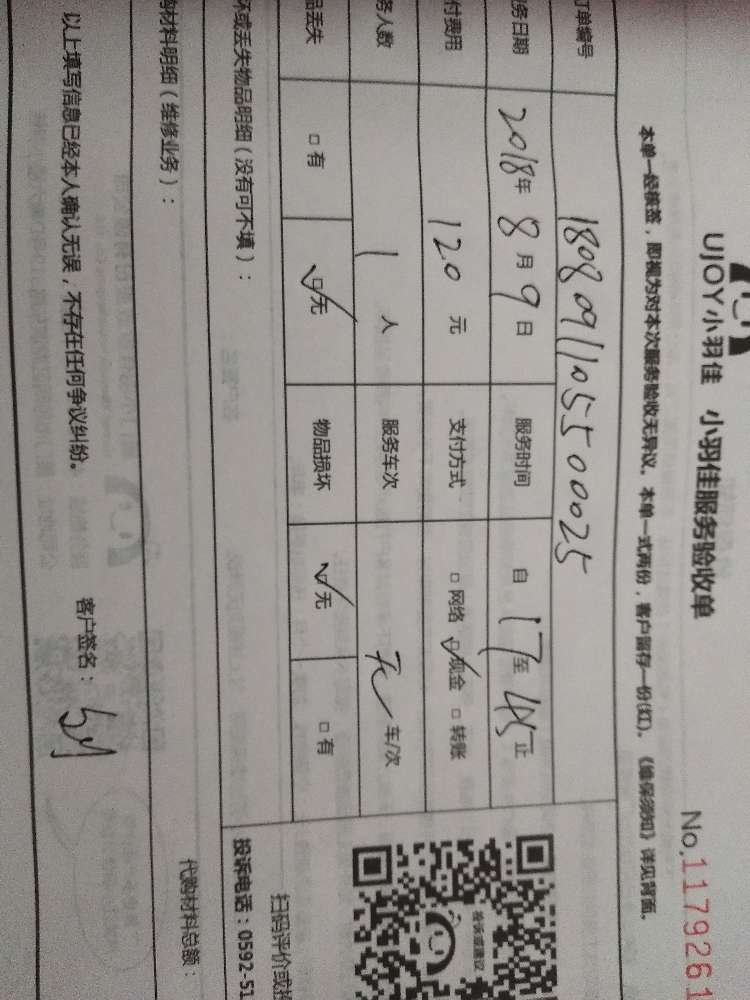 UJOY小羽佳 小羽佳服务验收单
No.1179261
本单一经核签，即视为对本次服务验收无异议。本单一式两份，客户留存一份(红)。《维保须知》详见背面。
订单编号 1808091105500025
务日期 2018年8月9日 服务时间 自 17至45止
付费用 120元 支付方式 □网络 ☑现金 □转账
务人数 1人 服务车次 无 车/次
品丢失 □有 ☑无 物品损坏 ☑无 □有
坏或丢失物品明细（没有可不填）：
投诉或建议
扫码评价或投
投诉电话：0592-51
购材料明细（维修业务）：
代购材料总额：
以上填写信息已经本人确认无误，不存在任何争议纠纷。
客户签名：